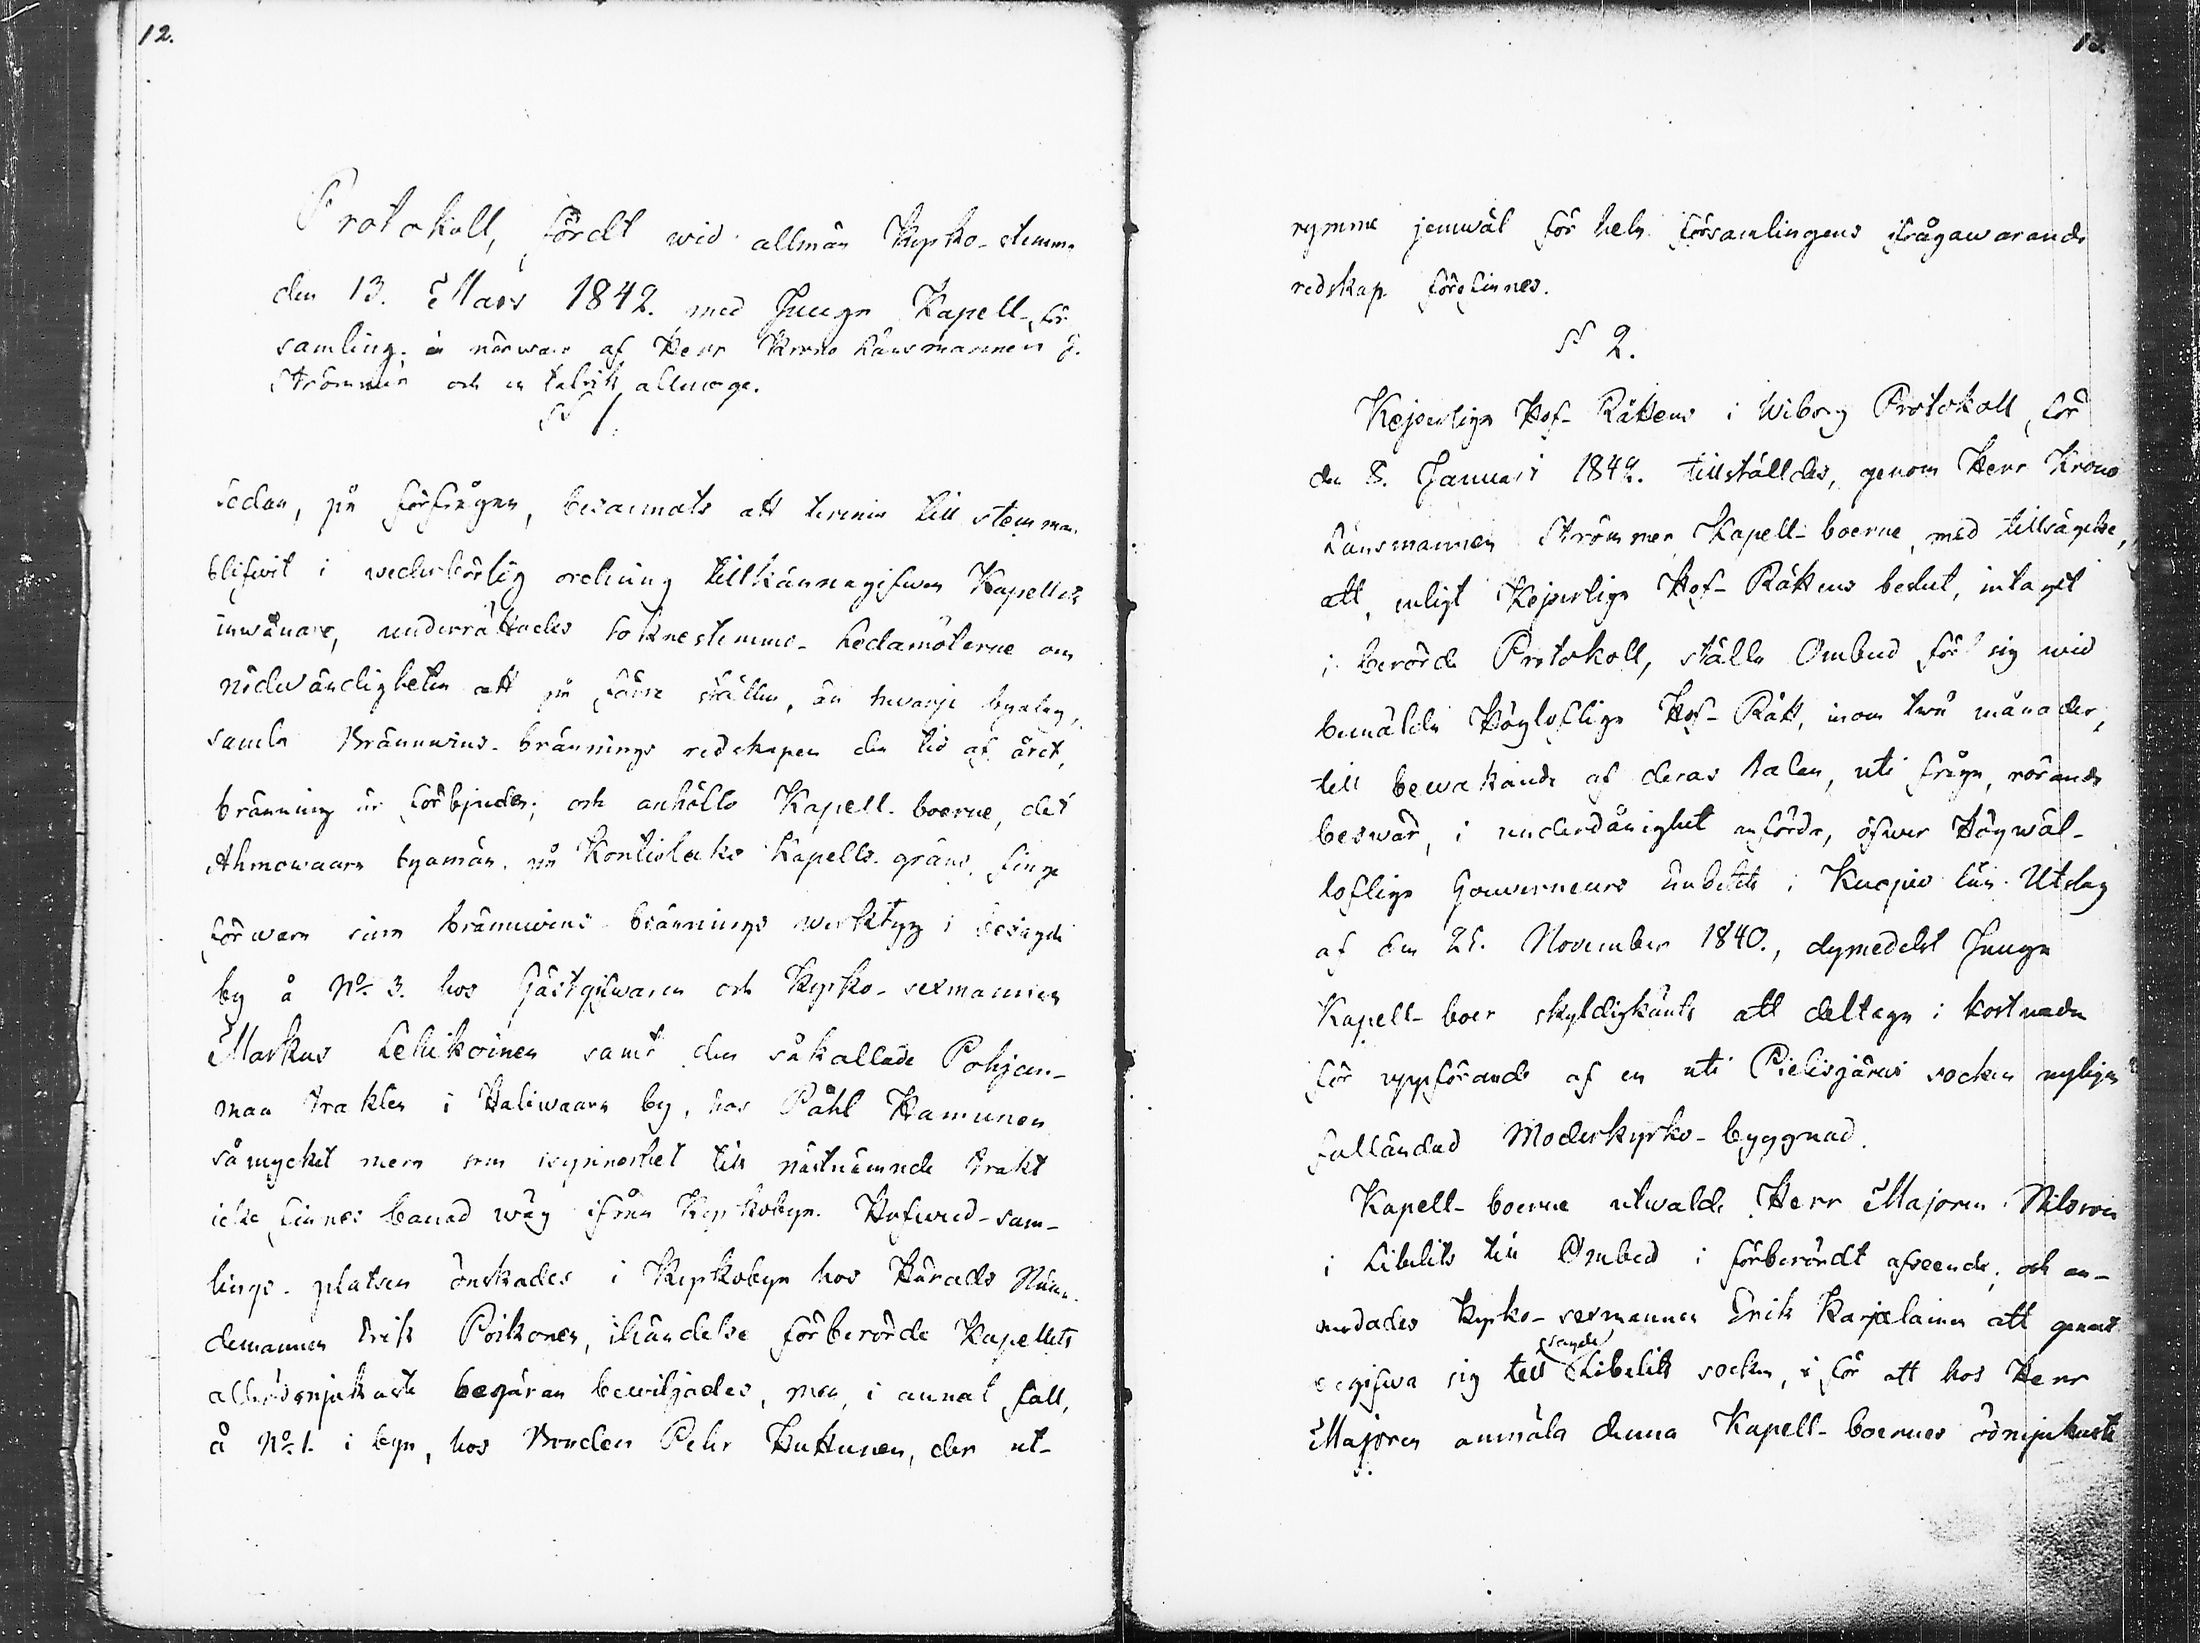 12.
Protokoll, fördt wid allmän Kyrko-stemma
den 13. Mars 1842. med Juuga Kapell-för
samling, i närwaro af Herr Krono Länsmannen J.
Strömmer och en talrik allmoge.
§ 1.
Sedan, på förfrågan, besannats att termin till stemman
blifwit i wederbörlig ordning tillkännagifwen Kapellets
inwånare, underrättades soknestemmo-Ledamöterne om
nödwändigheten att på färre ställen, än hwarje byalag,
samla Brännwins-brännings redskapen den tid af året,
bränning är förbjuden; och anhöllo Kapell-boerne, det
Ahmowaara byamän, på Kontiolaks Kapells gräns, finge
förwara sina brännwins brännings werktyg i besagde
by å No 3. hos Gästgifwaren och Kyrko-sexmannen
Markus Lehikoinen samt den såkallade Pohjan-
maa trakten i Haliwaara by, hos Påhl Hamunen
såmycket mera som isynnerhet till nästnämnde trakt
icke finnes banad wäg ifrån Kyrkobyn. Hufwud-sam-
lings-platsen önskades i Kyrkobyn hos Härads Nämn-
demannen Erik Poikonen, ihändelse förberörde Kapellets
allraödmjukaste begäran bewiljades, men, i annat fall,
å No 1. i byn, hos Bonden Pehr Huttunen, der ut-
13.
rymme jemwäl för hela församlingens ifrågawarande
redskap förefinnes.
§ 2.
Kejserliga Hof-Rättens i Wiborg Protokoll, för
den 8. Januari 1842. tillställdes, genom Herr Krono
Länsmannen Strömmer Kapell-boerne, med tillsägelse,
att, enligt Kejserliga Hof-Rättens beslut, intaget
i berörde Protokoll, ställa Ombud för sig wid
bemälde Högloflige Hof-Rätt, inom twå månader,
till bewakande af deras talan, uti fråga, rörande
beswär, i underdånighet anförde, öfwer Högwäl-
loflige Gouverneurs Embetets i Kuopio län Utslag
af den 25. November 1840., dymedelst Juuga
Kapell-boer skyldigkänts att deltaga i kostnaden
för uppförande af en uti Pielisjärwi socken nyligen
fulländad Moderkyrko-byggnad.
Kapell-boerne utwalde Herr Majoren Nilsson
i Libelits till Ombud i förberördt afseende, och an-
modades Kyrko-sexmannen Erik Karjalainen att genast
begifwa sig till Libelits socken, för att hos Herr
Majoren anmäla denna Kapell-boernes ödmjukaste